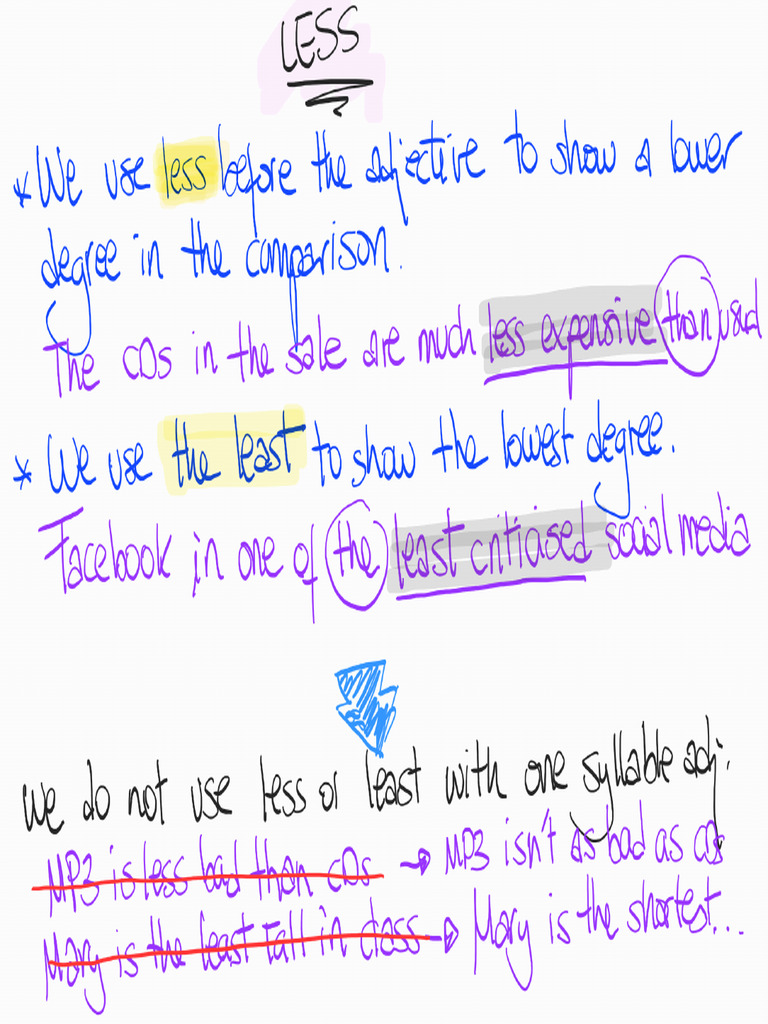 LESS
* We use less before the adjective to show a lower
degree in the comparison.
The CDs in the sale are much less expensive than usual
* We use the least to show the lowest degree.
Facebook in one of the least criticised social media
We do not use less or least with one syllable adj.
MP3 is less bad than CDs → MP3 isn't as bad as CDs
Mary is the least tall in class → Mary is the shortest...